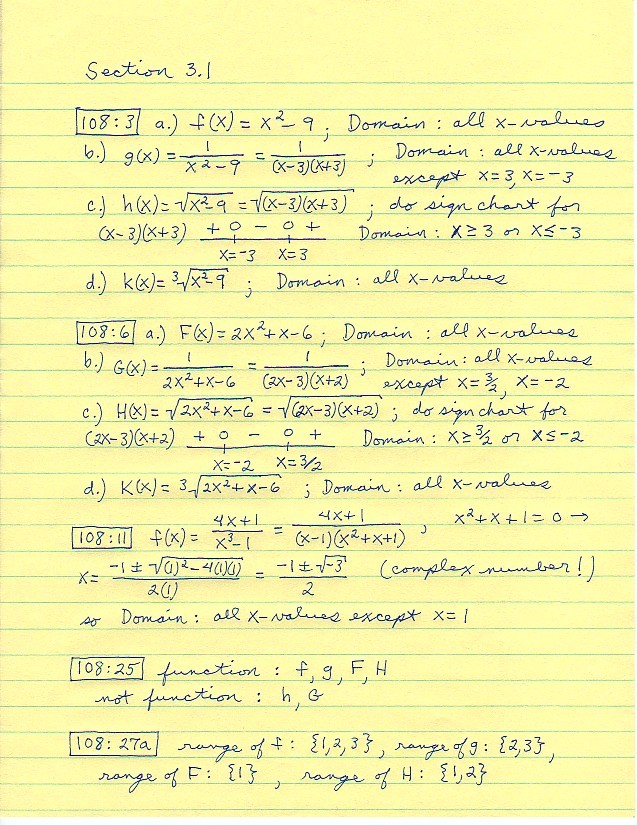 Section 3.1
108:3 a.) f(x) = x² - 9 ; Domain : all x-values
b.) g(x) = 1/(x² - 9) = 1/((x-3)(x+3)) ; Domain : all x-values
except x=3, x=-3
c.) h(x) = √(x²-9) = √((x-3)(x+3)) ; do sign chart for
(x-3)(x+3) + 0 - 0 + Domain : x ≥ 3 or x ≤ -3
x=-3 x=3
d.) k(x) = ³√(x²-9) ; Domain : all x-values
108:6 a.) F(x) = 2x²+x-6 ; Domain : all x-values
b.) G(x) = 1/(2x²+x-6) = 1/((2x-3)(x+2)) ; Domain : all x-values
except x = 3/2, x = -2
c.) H(x) = √(2x²+x-6) = √((2x-3)(x+2)) ; do sign chart for
(2x-3)(x+2) + 0 - 0 + Domain : x ≥ 3/2 or x ≤ -2
x=-2 x=3/2
d.) K(x) = 3√(2x²+x-6) ; Domain : all x-values
108:11 f(x) = (4x+1)/(x³-1) = (4x+1)/((x-1)(x²+x+1)) , x²+x+1=0 →
x = (-1 ± √((1)²-4(1)(1)))/(2(1)) = (-1 ± √-3)/2 (complex number!)
so Domain : all x-values except x=1
108:25 function : f, g, F, H
not function : h, G
108:27a range of f : {1,2,3} , range of g : {2,3} ,
range of F : {1} , range of H : {1,2}